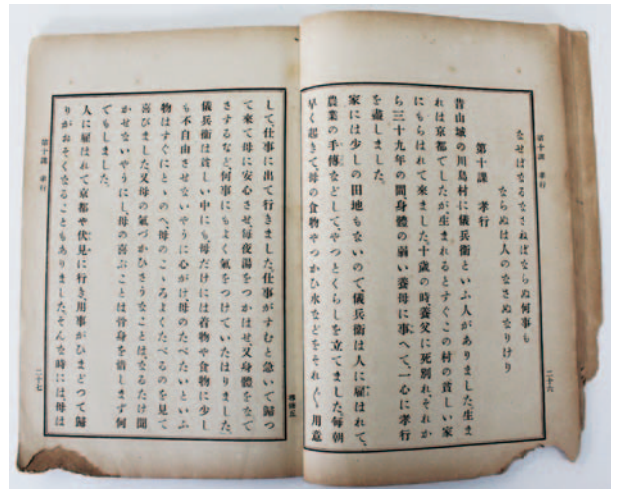 第十課 孝行
なせばなるなさねばならぬ何事も
ならぬは人のなさぬなりけり
第十課 孝行
昔山城の川島村に儀兵衞といふ人がありました。生ま
れは京都でしたが生まれるとすぐこの村の貧しい家
にもらはれて來ました。十歳の時養父に死別れ、それか
ら三十九年の間身體の弱い養母に事へて、一心に孝行
を盡しました。
家には少しの田地もないので、儀兵衞は人に雇はれて、
農業の手傳などして、やつとくらしを立てました。毎朝
早く起きて、母の食物やつかひ水などをそれ〴〵用意
二十六
して、仕事に出て行きました。仕事がすむと急いで歸つ
て來て母に安心させ、毎夜湯をつかはせ、又身體をなで
さするなど、何事にもよく氣をつけていたはりました。
儀兵衞は貧しい中にも、母だけには着物や食物に少し
も不自由させないやうに心がけ、母のたべたいといふ
物はすぐにとゝのへ、母のこゝろよくたべるのを見て
喜びました。又母の氣づかひさうなことは、なるたけ聞
かせないやうにし、母の喜ぶことは骨身を惜しまず何
でもしました。
人に雇はれて京都や伏見に行き、用事がひまどつて歸
りがおそくなることもありました。そんな時には、母は
第十課 孝行
二十七